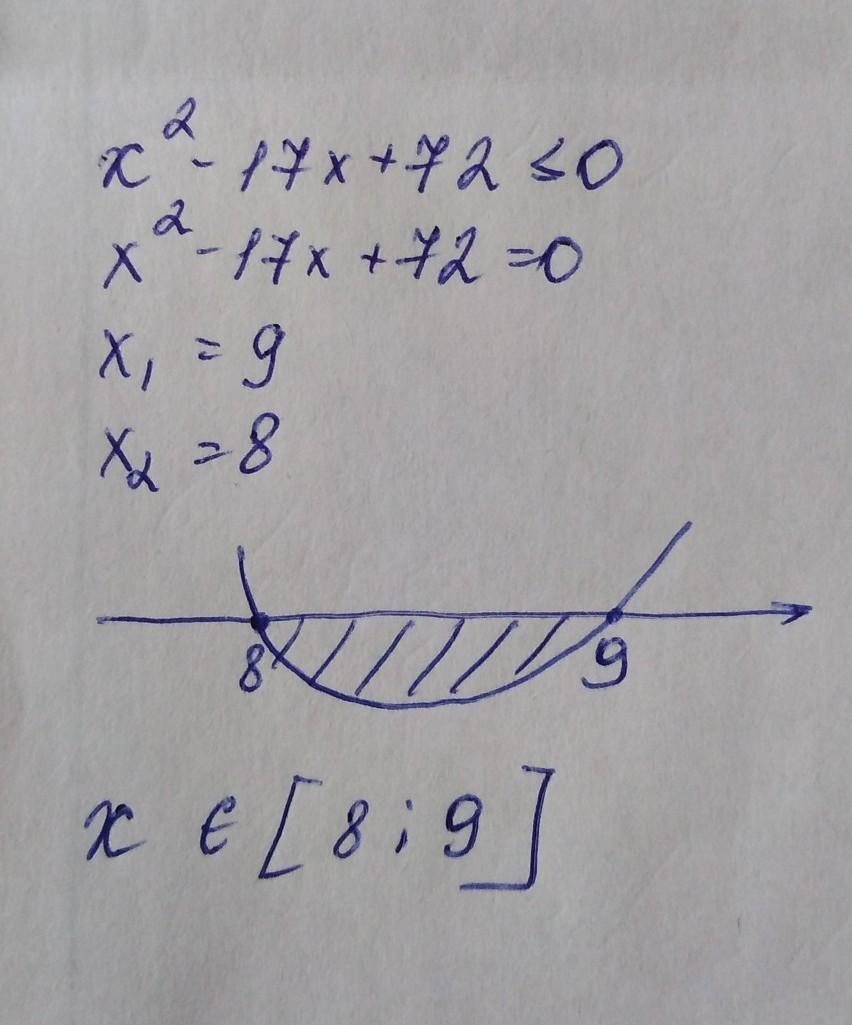 x² - 17x + 72 ≤ 0
x² - 17x + 72 = 0
x₁ = 9
x₂ = 8
8 9
x ∈ [8; 9]